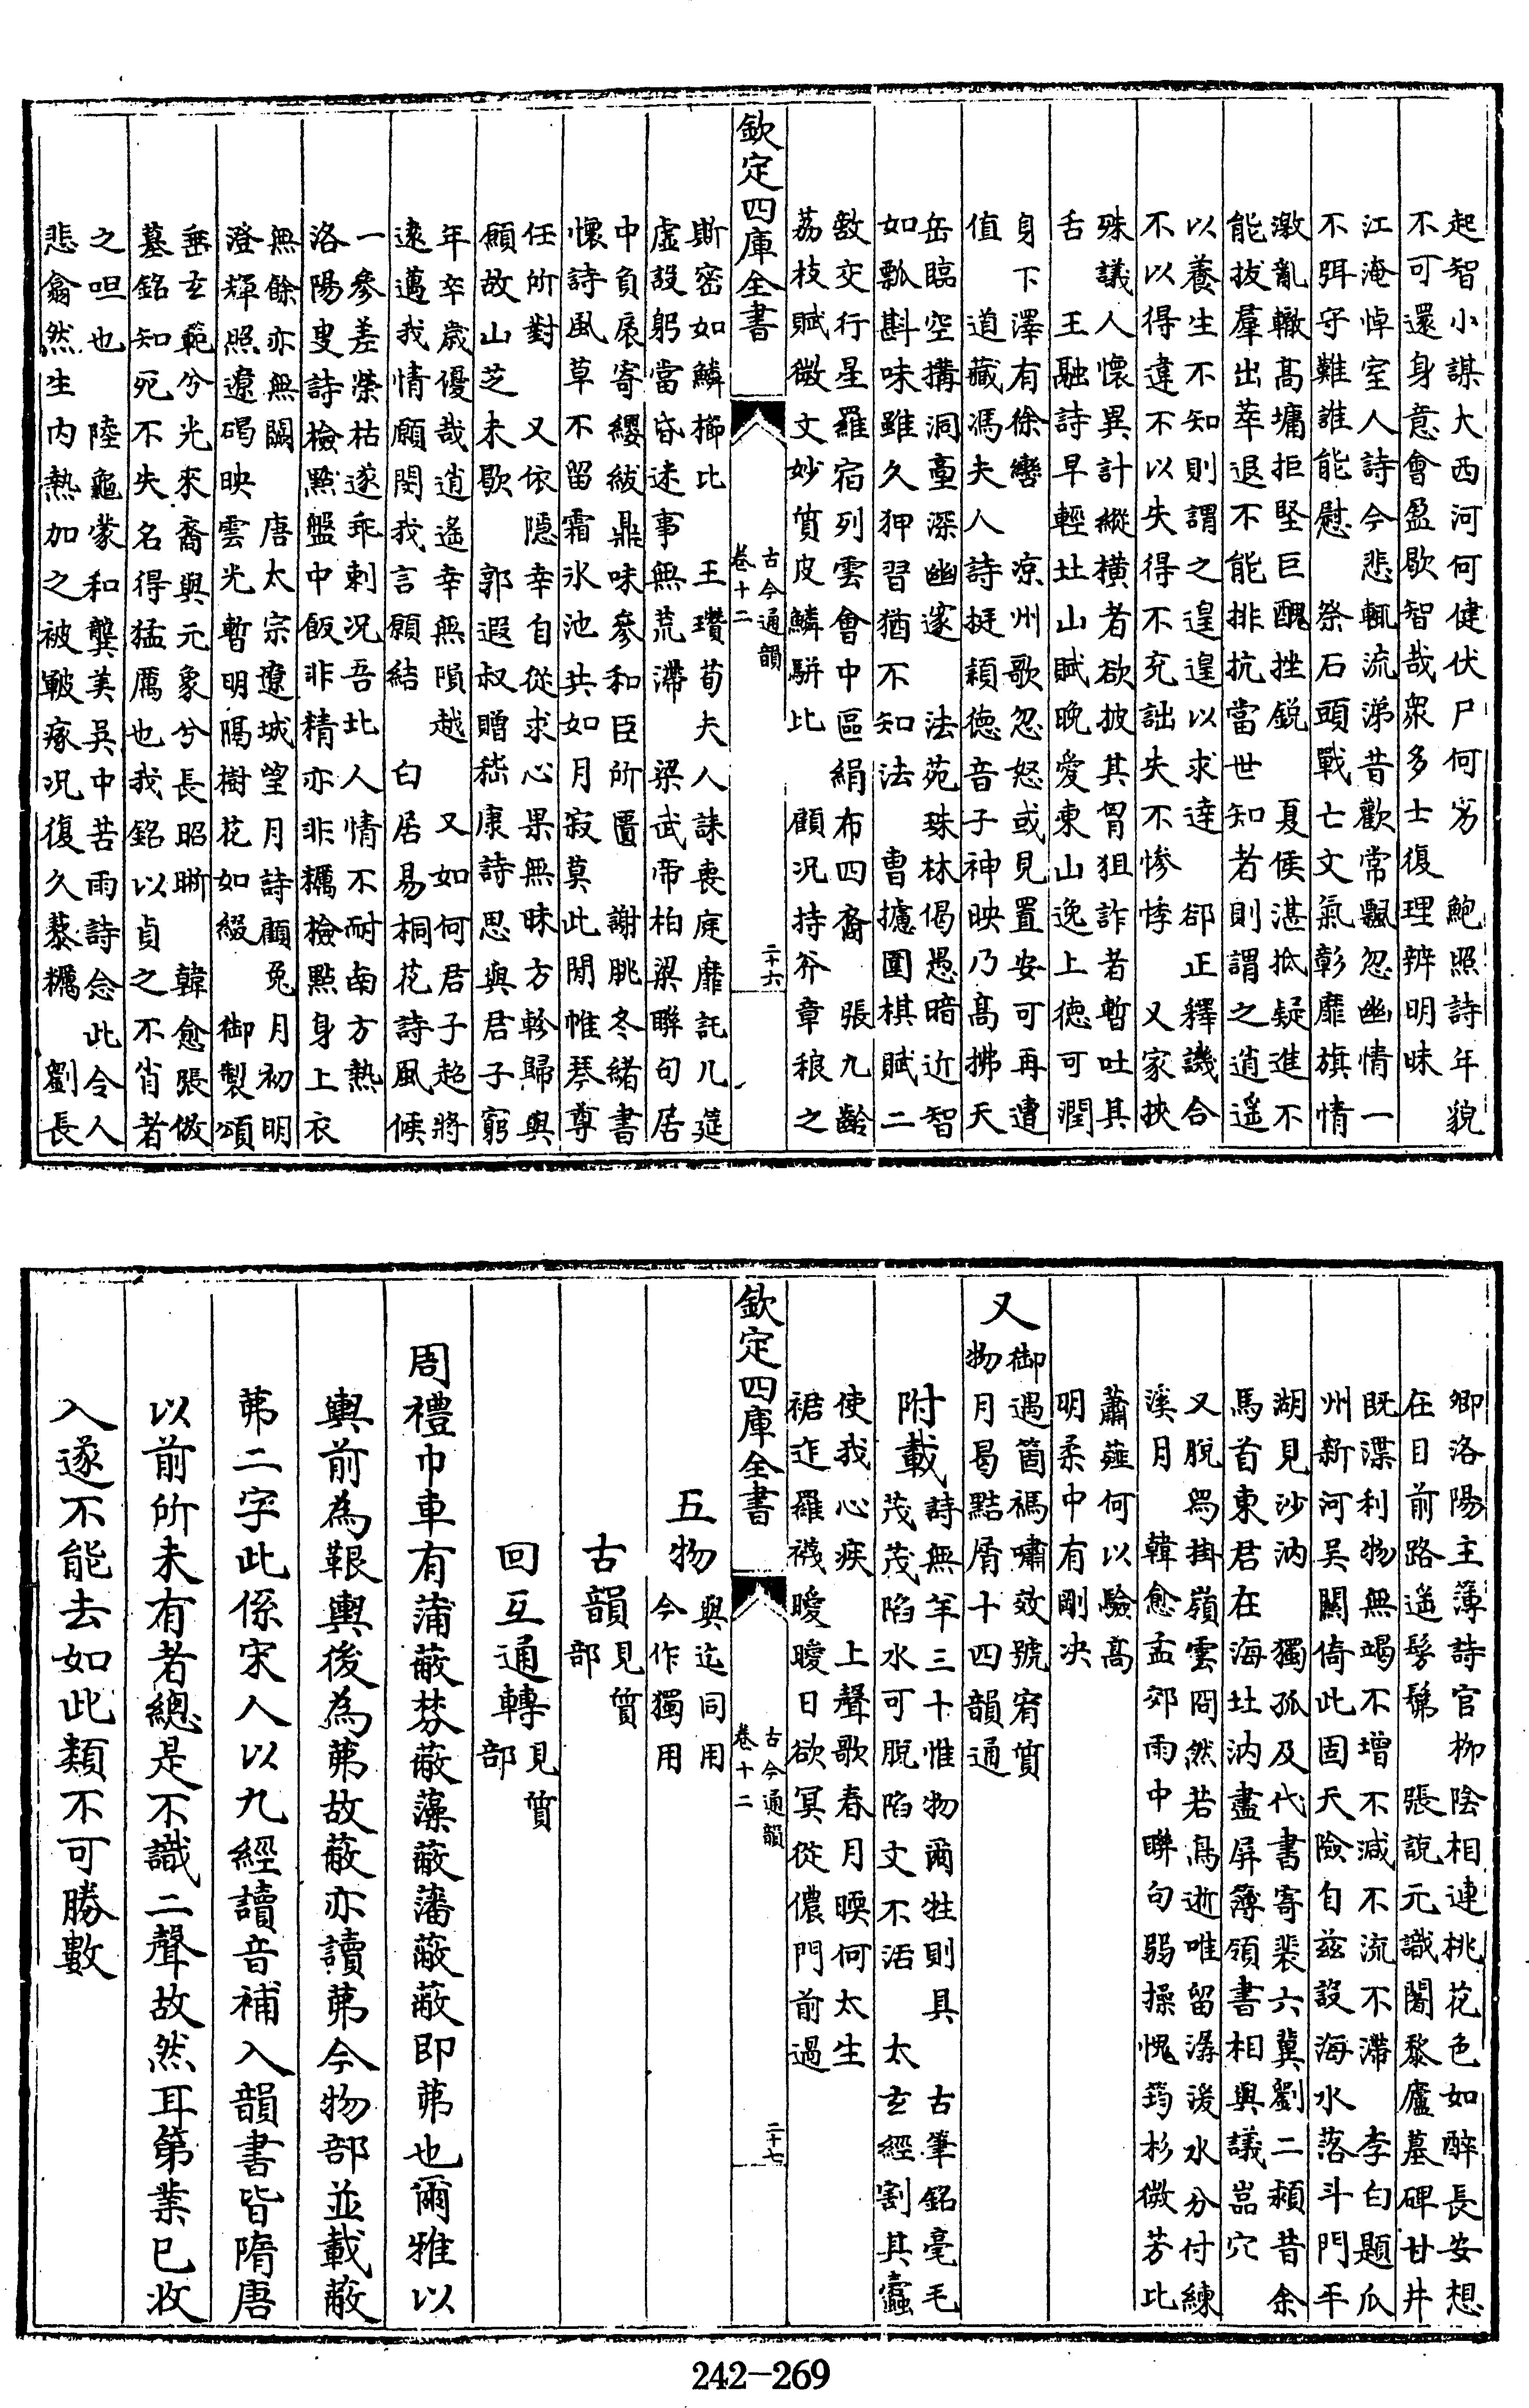 起智小謀大西河何健伏尸何劣　鮑照詩年貌
不可還身意會盈歇智哉衆多士復理辨明昧
江淹悼室人詩今悲輒流涕昔歡常飄忽幽情一
不弭守難誰能慰　祭石頭戰亡文氣彰靡旗情
激亂轍高墉拒堅巨醜挫銳　夏侯湛抵疑進不
能拔羣出萃退不能排抗當世知者則謂之逍遥
以養生不知則謂之遑遑以求達　郤正釋譏合
不以得違不以失得不充詘失不慘悸　又家挾
殊議人懷異計縱横者欲披其胷狙詐者暫吐其
舌　王融詩早輕壯山賦晚愛東山逸上德可潤
身下澤有徐轡　凉州歌忽怒或見置安可再遭
值　道藏馮夫人詩挺穎德音子神映乃高拂天
岳臨空搆洞臺深幽邃　法苑珠林偈愚暗近智
如瓢斟味雖久狎習猶不知法　曹攄圍棋賦二
敵交行星羅宿列雲會中區絹布四裔　張九齡
荔枝賦微文妙質皮鱗駢比　顧况持斧章稂之
欽定四庫全書
古今通韻
卷十二
二十六
斯密如鱗櫛比　王瓚荀夫人誄喪庭靡託几筵
虚設躬當昏迷事無荒滯　梁武帝柏梁聯句居
中負扆寄纓紱鼎味參和臣所匱　謝朓冬緒書
懷詩風草不留霜氷池共如月寂莫此閒帷琴尊
任所對　又依隱幸自從求心果無昧方軫歸與
願故山芝未歇　郭遐叔贈嵇康詩思與君子窮
年卒歲優哉逍遙幸無隕越　又如何君子超將
遠邁我情願関我言願結　白居易桐花詩風候
一參差榮枯遂乖剌况吾北人情不耐南方熱
洛陽叟詩檢㸃盤中飯非精亦非糲檢㸃身上衣
無餘亦無闕　唐太宗遼城望月詩顧兔月初明
澄輝照遼碣映雲光暫明隔樹花如綴　御製頌
垂玄範兮光來裔與元象兮長昭晣　韓愈張徹
墓銘知死不失名得猛厲也我銘以貞之不肖者
之呾也　陸龜蒙和龔美吳中苦雨詩念此令人
悲翕然生内熱加之被皸瘃况復久藜糲　劉長
卿洛陽主薄詩官栁陰相連桃花色如醉長安想
在目前路遥髣髴　張說元識闍黎廬墓碑甘井
既渫利物無竭不增不減不流不滯　李白題瓜
州新河吴關倚此固天險自兹設海水落斗門平
湖見沙汭　獨孤及代書寄裴六冀劉二頴昔余
馬首東君在海壯汭盡屏簿領書相與議嵓穴
又脫舄掛嶺雲冏然若鳥逝唯留潺湲水分付練
溪月　韓愈孟郊雨中聯句弱操愧筠杉微芳比
蕭薤何以驗高
明柔中有剛决
又御遇箇禡嘯效號宥質
物月曷黠屑十四韻通
附載詩無羊三十惟物爾牲則具　古筆銘毫毛
茂茂陷水可脫陷文不活　太玄經割其蠹
使我心疾　上聲歌春月暖何太生
裙迮羅襪曖曖日欲冥從儂門前過
欽定四庫全書
古今通韻
卷十二
二十七
五物與迄同用
今作獨用
古韻見質
部
回互通轉見質
部
周禮巾車有蒲蔽棼蔽藻蔽藩蔽蔽即茀也爾雅以
輿前為鞎輿後為茀故蔽亦讀茀今物部並載蔽
茀二字此係宋人以九經讀音補入韻書皆隋唐
以前所未有者總是不識二聲故然耳第業已收
入遂不能去如此類不可勝數
242-269